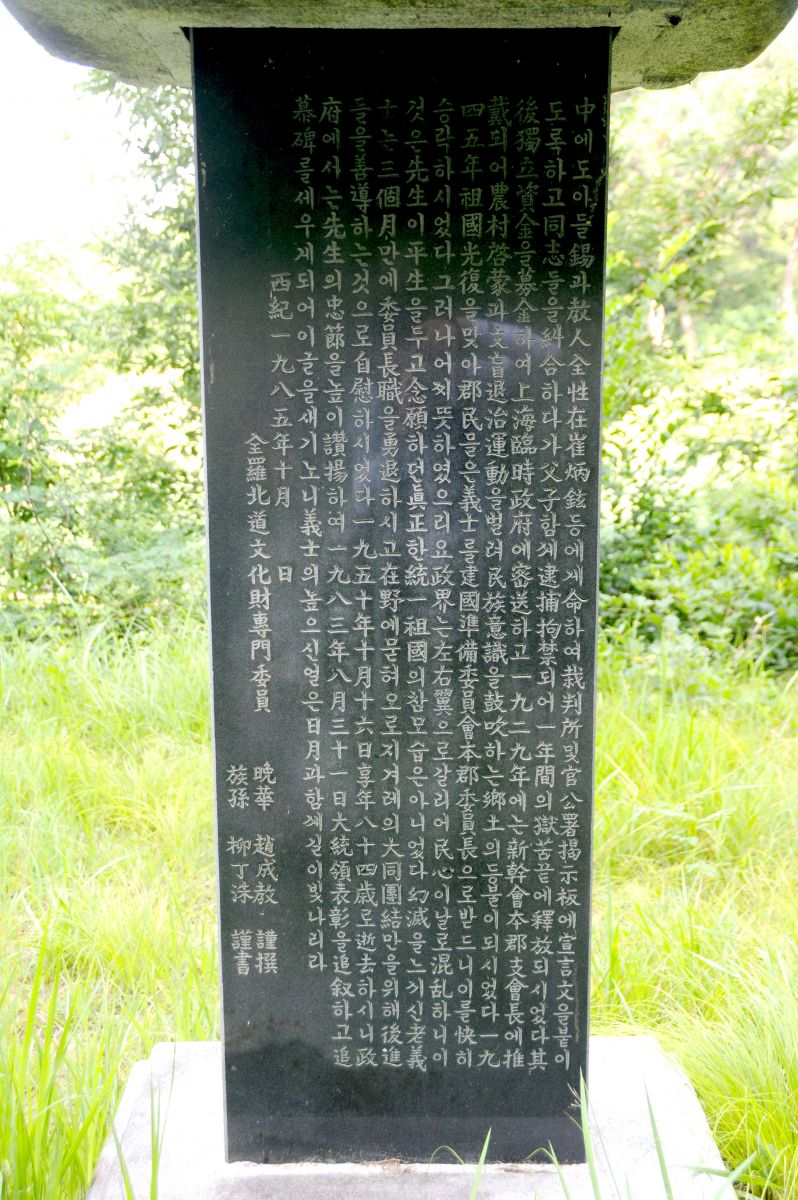 中에도아들錫과敎人全性在崔炳鉉등에게命하여裁判所및官公署揭示板에宣言文을붙이
도록하고同志들을糾合하다가父子함께逮捕拘禁되어一年間의獄苦끝에釋放되시었다其
後獨立資金을募金하여上海臨時政府에密送하고一九二九年에는新幹會本郡支會長에推
戴되어農村啓蒙과文盲退治運動을벌려民族意識을鼓吹하는鄕土의등불이되시었다一九
四五年祖國光復을맞아郡民들은義士를建國準備委員會本郡委員長으로받드니이를快히
승락하시었다그러나어찌뜻하였으리요政界는左右翼으로갈리어民心이날로混亂하니이
것은先生이平生을두고念願하던眞正한統一祖國의찬모습은아니었다幻滅을느끼신老義
士는三個月만에委員長職을勇退하시고在野에묻혀오로지겨레의大同團結만을위해後進
들을善導하는것으로自慰하시었다一九五十年十月十六日享年八十四歲로逝去하시니政
府에서는先生의忠節을높이讚揚하여一九八三年八月三十一日大統領表彰을追叙하고追
慕碑를세우게되어이글을새기노니義士의높으신얼은日月과함께길이빛나리라
西紀一九八五年十月 日
全羅北道文化財專門委員 晩華 趙成敎 謹撰
族孫 柳丁洙 謹書